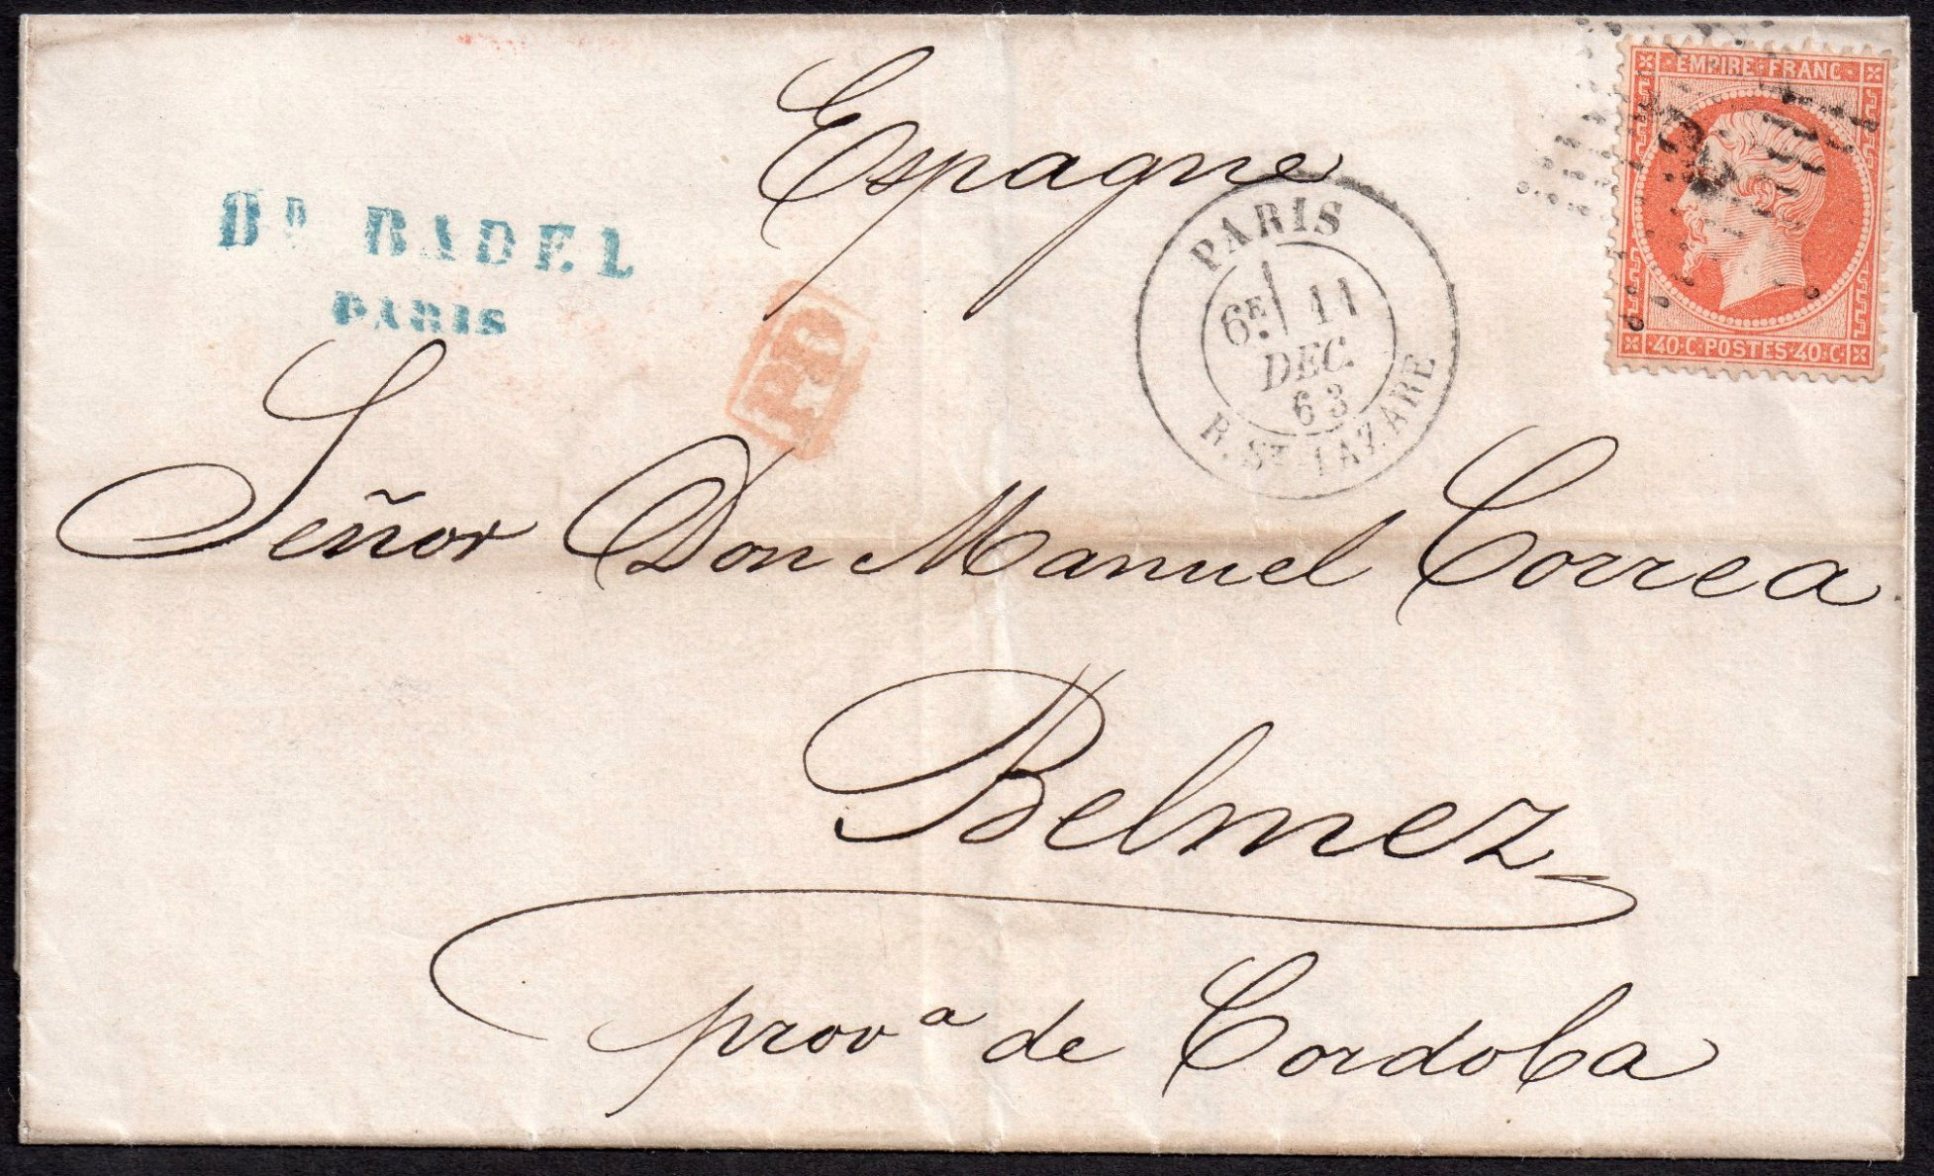 Espagne
BD BADEL
PARIS
PD
PARIS
6E 11
DEC.
63
R. ST LAZARE
EMPIRE FRANC
40 C POSTES 40 C
Señor Don Manuel Correa
Belmez
provª de Cordoba